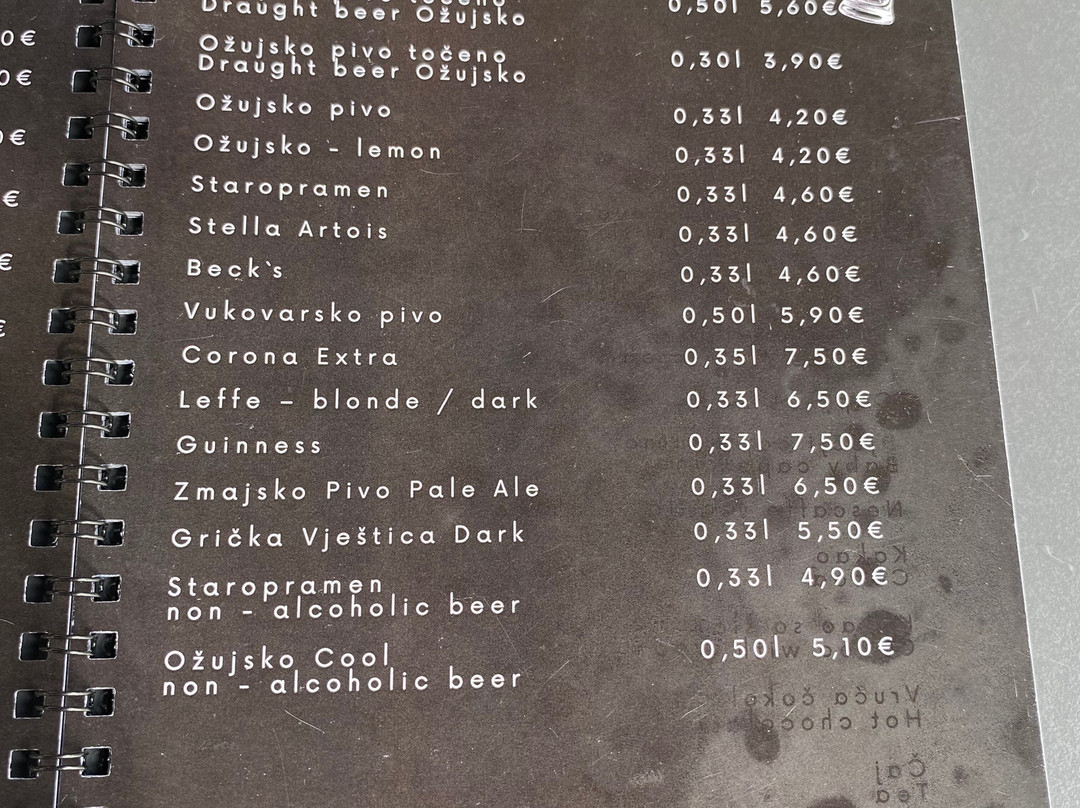 Draught beer Ožujsko 0,50l 5,60€
Ožujsko pivo točeno
Draught beer Ožujsko 0,30l 3,90€
Ožujsko pivo 0,33l 4,20€
Ožujsko - lemon 0,33l 4,20€
Staropramen 0,33l 4,60€
Stella Artois 0,33l 4,60€
Beck`s 0,33l 4,60€
Vukovarsko pivo 0,50l 5,90€
Corona Extra 0,35l 7,50€
Leffe – blonde / dark 0,33l 6,50€
Guinness 0,33l 7,50€
Zmajsko Pivo Pale Ale 0,33l 6,50€
Grička Vještica Dark 0,33l 5,50€
Staropramen 0,33l 4,90€
non - alcoholic beer
Ožujsko Cool 0,50l 5,10€
non - alcoholic beer